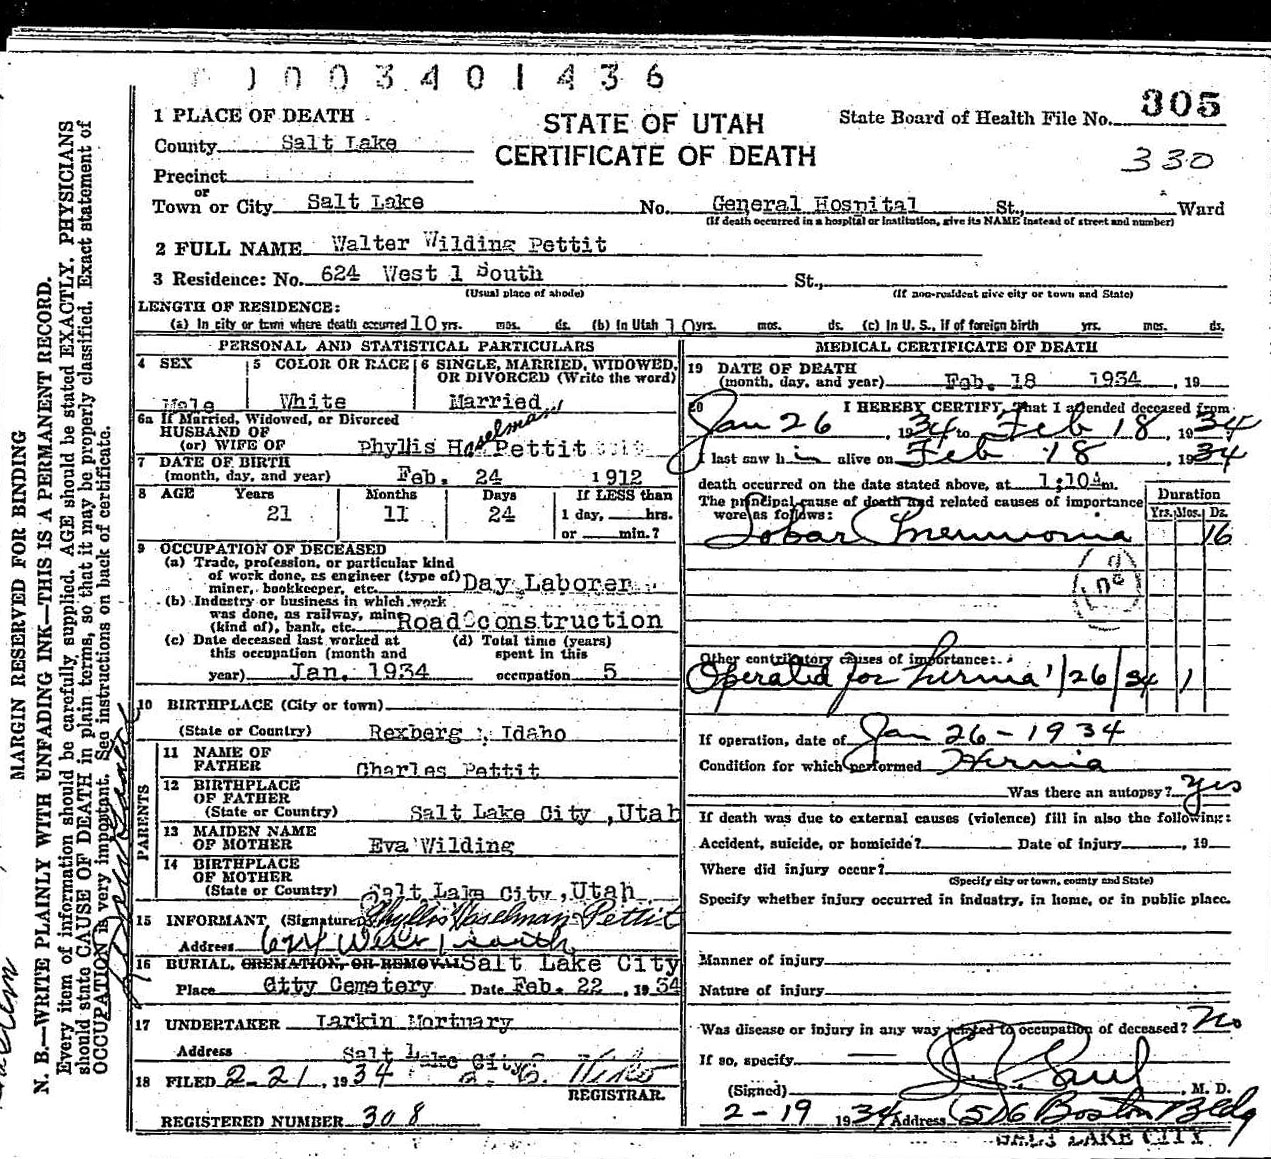 1003401436
305
1 PLACE OF DEATH
STATE OF UTAH
State Board of Health File No.
County Salt Lake
CERTIFICATE OF DEATH
330
Precinct
or
Town or City Salt Lake No. General Hospital St., Ward
(If death occurred in a hospital or institution, give its NAME instead of street and number)
2 FULL NAME Walter Wilding Pettit
3 Residence: No. 624 West 1 South St.,
(Usual place of abode) (If non-resident give city or town and State)
LENGTH OF RESIDENCE:
(a) In city or town where death occurred 10 yrs. mos. ds. (b) In Utah 10 yrs. mos. ds. (c) In U. S., if of foreign birth yrs. mos. ds.
PERSONAL AND STATISTICAL PARTICULARS
4 SEX 5 COLOR OR RACE 6 SINGLE, MARRIED, WIDOWED, OR DIVORCED (Write the word)
Male White Married
6a If Married, Widowed, or Divorced
HUSBAND OF
(or) WIFE OF Phyllis Haselman Pettit
7 DATE OF BIRTH
(month, day, and year) Feb. 24 1912
8 AGE Years Months Days If LESS than
21 11 24 1 day, hrs.
or min.?
9 OCCUPATION OF DECEASED
(a) Trade, profession, or particular kind
of work done, as engineer (type of)
miner, bookkeeper, etc. Day Laborer
(b) Industry or business in which work
was done, as railway, mine
(kind of), bank, etc. Road construction
(c) Date deceased last worked at (d) Total time (years)
this occupation (month and spent in this
year) Jan. 1934 occupation 5
10 BIRTHPLACE (City or town)
(State or Country) Rexberg, Idaho
PARENTS
11 NAME OF
FATHER Charles Pettit
12 BIRTHPLACE
OF FATHER
(State or Country) Salt Lake City, Utah
13 MAIDEN NAME
OF MOTHER Eva Wilding
14 BIRTHPLACE
OF MOTHER
(State or Country) Salt Lake City, Utah
15 INFORMANT (Signature) Phyllis Haselman Pettit
Address 624 West 1 South
16 BURIAL, CREMATION, OR REMOVAL Salt Lake City
Place City Cemetery Date Feb. 22, 1934
17 UNDERTAKER Larkin Mortuary
Address Salt Lake City
18 FILED 2-21, 1934
REGISTRAR.
REGISTERED NUMBER 308
MEDICAL CERTIFICATE OF DEATH
19 DATE OF DEATH
(month, day, and year) Feb. 18 1934, 19
20 I HEREBY CERTIFY, That I attended deceased from
Jan 26, 1934 to Feb 18, 1934
I last saw h im alive on Feb 18 1934
death occurred on the date stated above, at 1:10 a m.
The principal cause of death and related causes of importance
were as follows:
Duration
Yrs. Mos. Ds.
Lobar Pneumonia 16
Other contributory causes of importance:
Operated for hernia 1/26/34 1
If operation, date of Jan 26-1934
Condition for which performed Hernia
Was there an autopsy? Yes
If death was due to external causes (violence) fill in also the following:
Accident, suicide, or homicide? Date of injury, 19
Where did injury occur?
(Specify city or town, county and State)
Specify whether injury occurred in industry, in home, or in public place.
Manner of injury
Nature of injury
Was disease or injury in any way related to occupation of deceased? No
If so, specify
(Signed) M. D.
2-19 1934 Address 516 Boston Bldg
SALT LAKE CITY
MARGIN RESERVED FOR BINDING
N. B.—WRITE PLAINLY WITH UNFADING INK—THIS IS A PERMANENT RECORD.
Every item of information should be carefully supplied. AGE should be stated EXACTLY. PHYSICIANS
should state CAUSE OF DEATH in plain terms, so that it may be properly classified. Exact statement of
OCCUPATION is very important. See instructions on back of certificate.